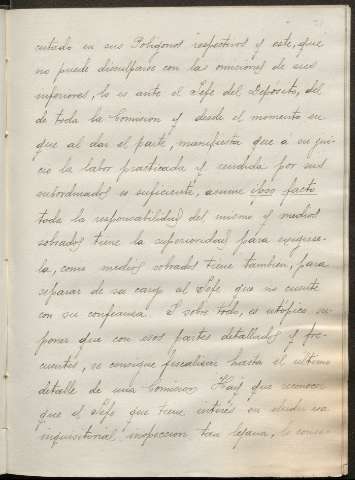 cutado en sus Poligonos respectivos y este, que
no puede disculparse con las omisiones de sus
inferiores, lo es ante el Jefe del Depósito, del
de toda la Comision y desde el momento en
que al dar el parte, manifiesta que á su jui-
cio la labor practicada y rendida por sus
subordinados es suficiente, asume ipso facto
toda la responsabilidad del mismo y medios
sobrados tiene la superioridad para exigirse-
la, como medios sobrados tiene tambien, para
separar de su cargo al Jefe que no cuente
con su confianza. Y sobre todo, es utópico su-
poner que con esos partes detallados y fre-
cuentes, se consigue fiscalizar hasta el ultimo
detalle de una Comision. Hay que reconocer
que el Jefe que tiene interés en eludir esa
inquisitorial inspeccion tan lejana, lo conse-